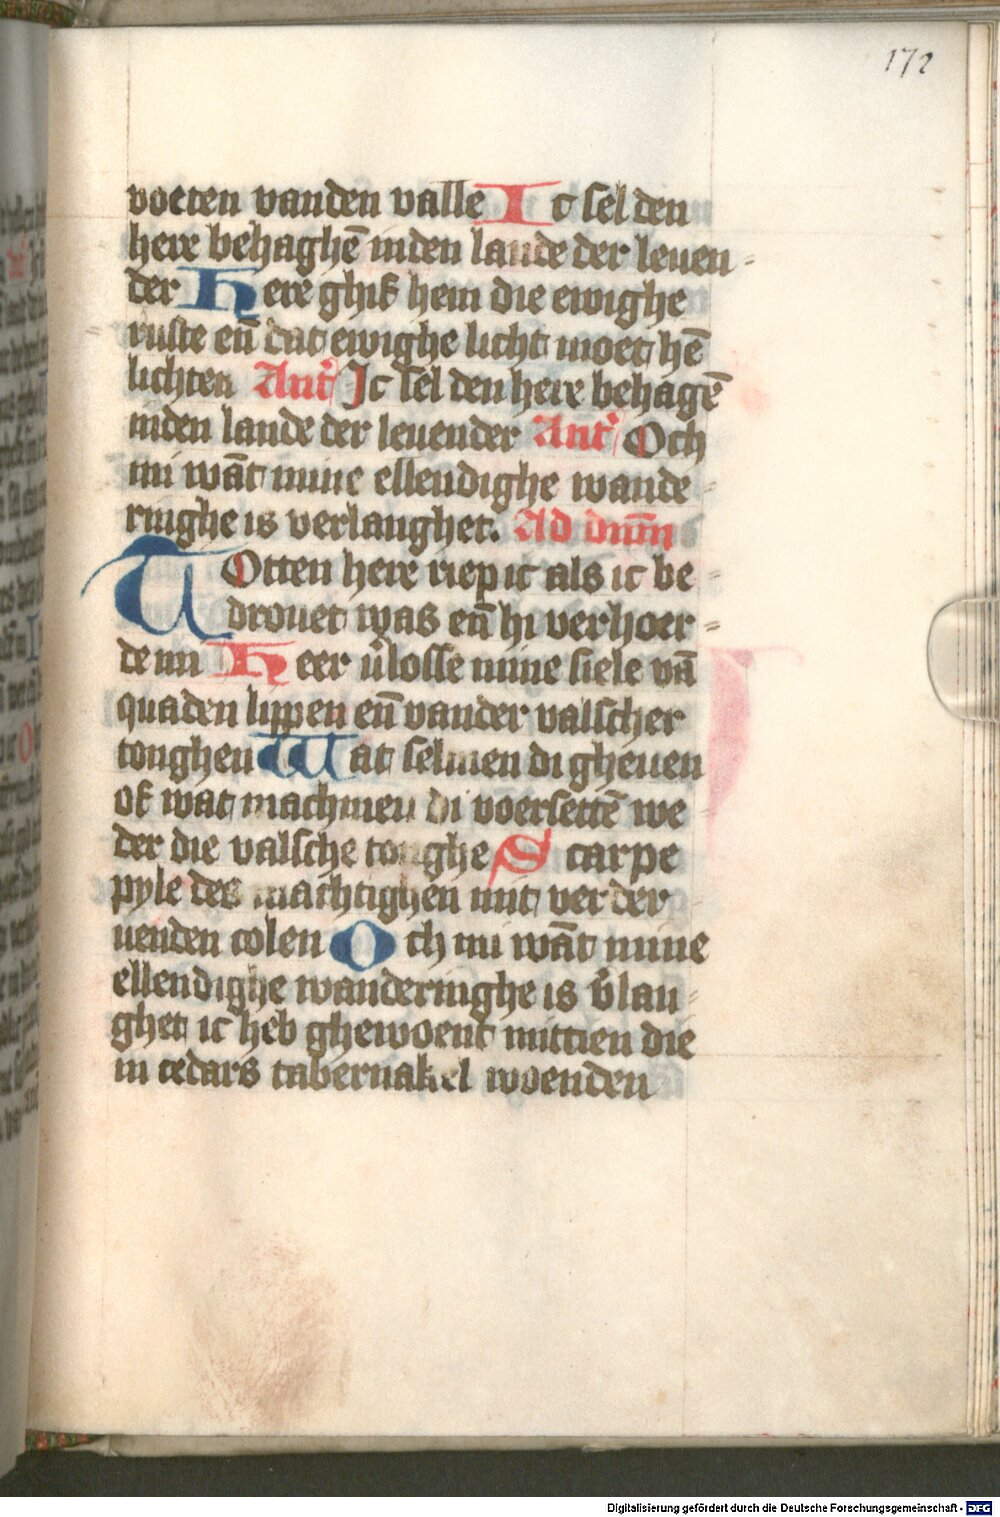 172
voeten vanden valle Ic sel den
here behaghē inden lande der leuen-
der Here ghif hem die ewighe
ruste eñ dat ewighe licht moet hē
lichten Ant' Ic sel den here behagē
inden lande der leuender Ant' Och
mi wāt mine ellendighe wande-
ringhe is verlanghet. Ad dnm̄
TOtten here riep ic als ic be-
drouet was eñ hi verhoer-
de mi Heer v'losse mine siele vā
quaden lippen eñ vander valscher
tonghen Wat selmen di gheuen
of wat machmen di voersettē we-
der die valsche tonghe Scarpe
pyle des machtighen mit verder-
uenden colen Och mi wāt mine
ellendighe wanderinghe is v'lan-
ghet ic heb ghewoent mittien die
in cedars tabernakel woenden
Digitalisierung gefördert durch die Deutsche Forschungsgemeinschaft - DFG